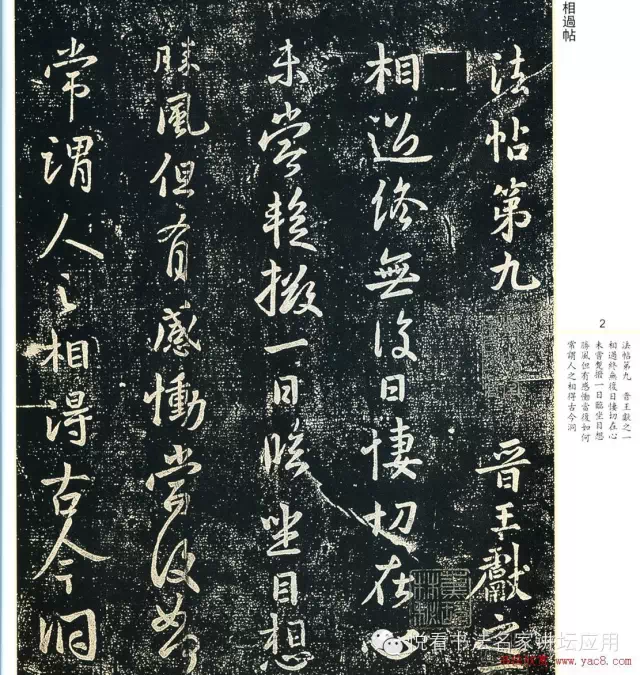 相過帖
法帖第九 晉王獻之一
相過終無復日悽切在心
未嘗暫掇一日臨坐目想
勝風但有感慟當復如何
常謂人之相得古今洞
2
法帖第九 晉王獻之一
相過終無復日悽切在心
未嘗暫掇一日臨坐目想
勝風但有感慟當復如何
常謂人之相得古今洞
悦看书法名家讲坛应用
www.yac8.com